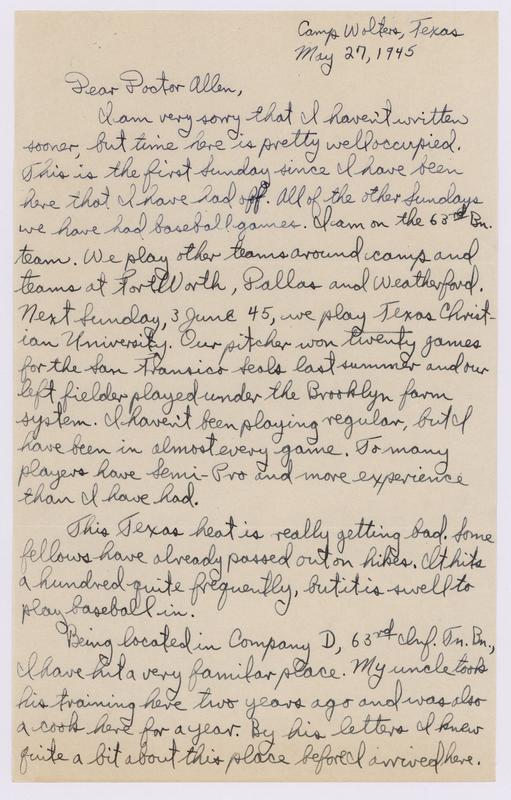 Camp Wolters, Texas
May 27, 1945
Dear Doctor Allen,
I am very sorry that I haven't written
sooner, but time here is pretty well occupied.
This is the first Sunday since I have been
here that I have had off. All of the other Sundays
we have had baseball games. I am on the 63rd Bn.
team. We play other teams around camp and
teams at Fort Worth, Dallas and Weatherford.
Next Sunday, 3 June 45, we play Texas Christ-
ian University. Our pitcher won twenty games
for the San Fransico Seals last summer and our
left fielder played under the Brooklyn farm
system. I haven't been playing regular, but I
have been in almost every game. To many
players have Semi-Pro and more experience
than I have had.
This Texas heat is really getting bad. Some
fellows have already passed out on hikes. It hits
a hundred quite frequently, but it is swell to
play baseball in.
Being located in Company D, 63rd Inf. Tn. Bn.,
I have hit a very familar place. My uncle took
his training here two years ago and was also
a cook here for a year. By his letters I knew
quite a bit about this place before I arrived here.